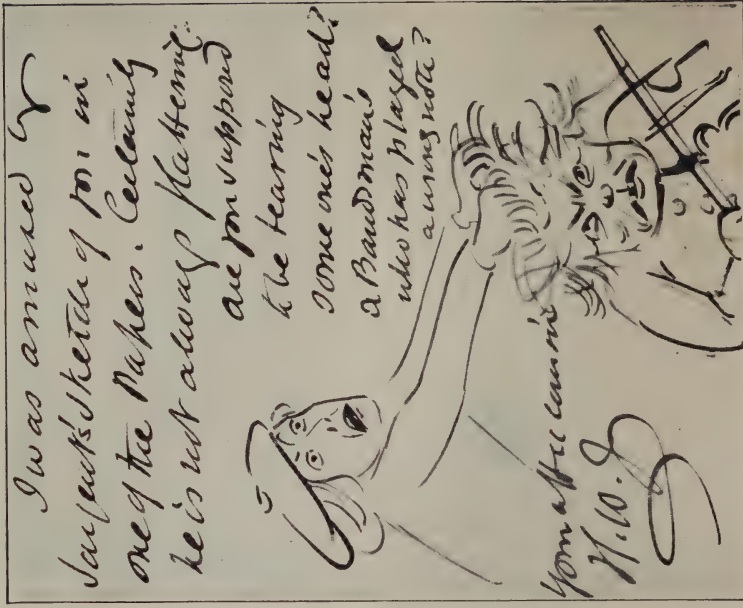 I was amused by
Sargent's sketch of you in
one of the Papers. Certainly
he is not always flattering.
are you supposed
to be tearing
some one's head?
a Bandman's
who has played
a wrong note?
Your affec cousin
H. W. S